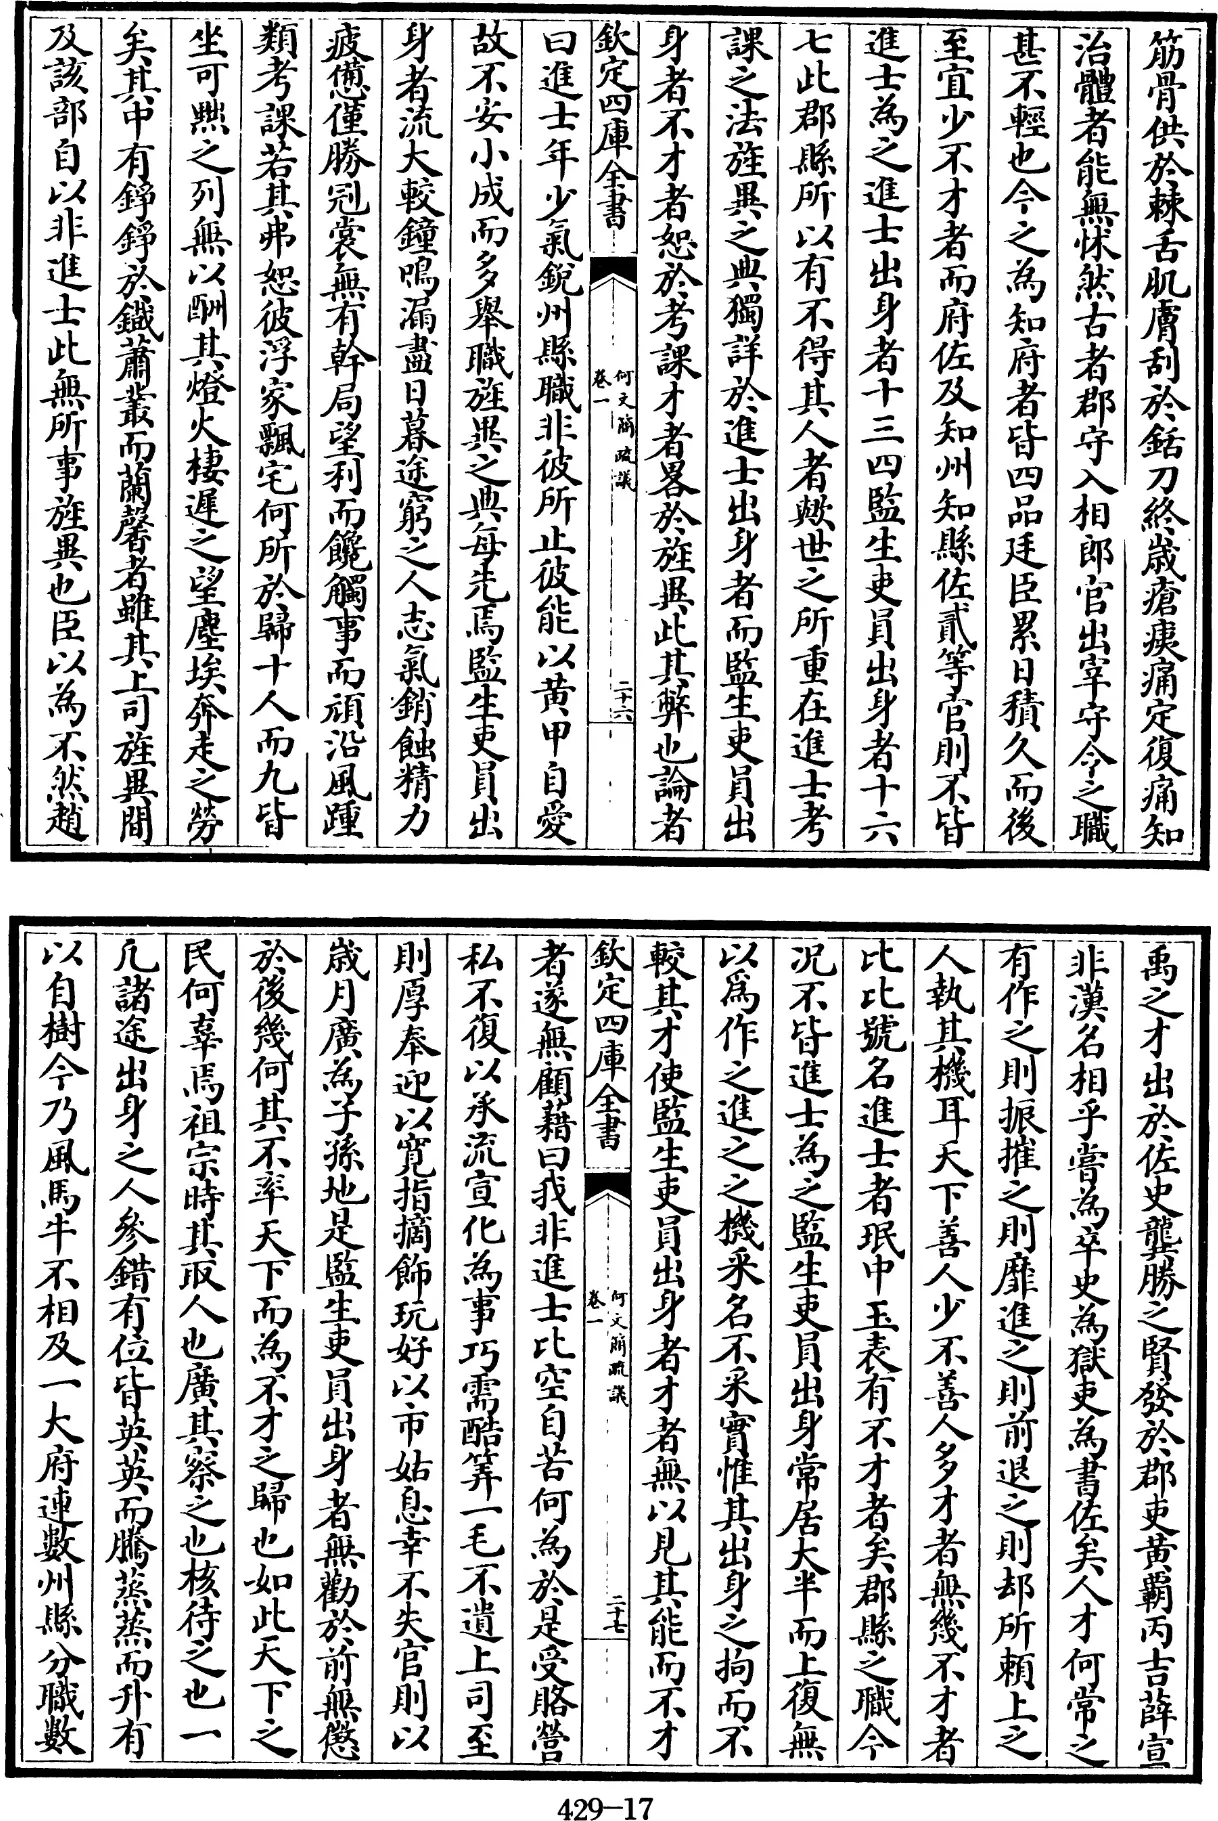 筋骨供於棘舌肌膚刮於銛刀終歲瘡痍痛定復痛知
治體者能無怵然古者郡守入相郎官出宰守令之職
甚不輕也今之為知府者皆四品廷臣累日積久而後
至宜少不才者而府佐及知州知縣佐貳等官則不皆
進士為之進士出身者十三四監生吏員出身者十六
七此郡縣所以有不得其人者歟世之所重在進士考
課之法旌異之典獨詳於進士出身者而監生吏員出
身者不才者恕於考課才者畧於旌異此其弊也論者
欽定四庫全書
何文簡疏議
卷一
二十六
曰進士年少氣銳州縣職非彼所止彼能以黄甲自愛
故不安小成而多舉職旌異之典每先焉監生吏員出
身者流大較鐘鳴漏盡日暮途窮之人志氣銷蝕精力
疲憊僅勝冠裳無有幹局望利而饞觸事而頑沿風踵
類考課若其弗恕彼浮家飄宅何所於歸十人而九皆
坐可黜之列無以酬其燈火棲遲之望塵埃奔走之勞
矣其中有錚錚於鐵蕭叢而蘭馨者雖其上司旌異間
及該部自以非進士此無所事旌異也臣以為不然趙
禹之才出於佐史龔勝之賢發於郡吏黄霸丙吉薛宣
非漢名相乎嘗為卒史為獄吏為書佐矣人才何常之
有作之則振摧之則靡進之則前退之則却所賴上之
人執其機耳天下善人少不善人多才者無幾不才者
比比號名進士者珉中玉表有不才者矣郡縣之職今
況不皆進士為之監生吏員出身常居大半而上復無
以爲作之進之之機采名不采實惟其出身之拘而不
較其才使監生吏員出身者才者無以見其能而不才
欽定四庫全書
何文簡疏議
卷一
二十七
者遂無顧藉曰我非進士比空自苦何為於是受賂營
私不復以承流宣化為事巧需酷筭一毛不遺上司至
則厚奉迎以寛指摘飾玩好以市姑息幸不失官則以
歲月廣為子孫地是監生吏員出身者無勸於前無懲
於後幾何其不率天下而為不才之歸也如此天下之
民何辜焉祖宗時其取人也廣其察之也核待之也一
凡諸途出身之人參錯有位皆英英而騰蒸蒸而升有
以自樹今乃風馬牛不相及一大府連數州縣分職數
429-17